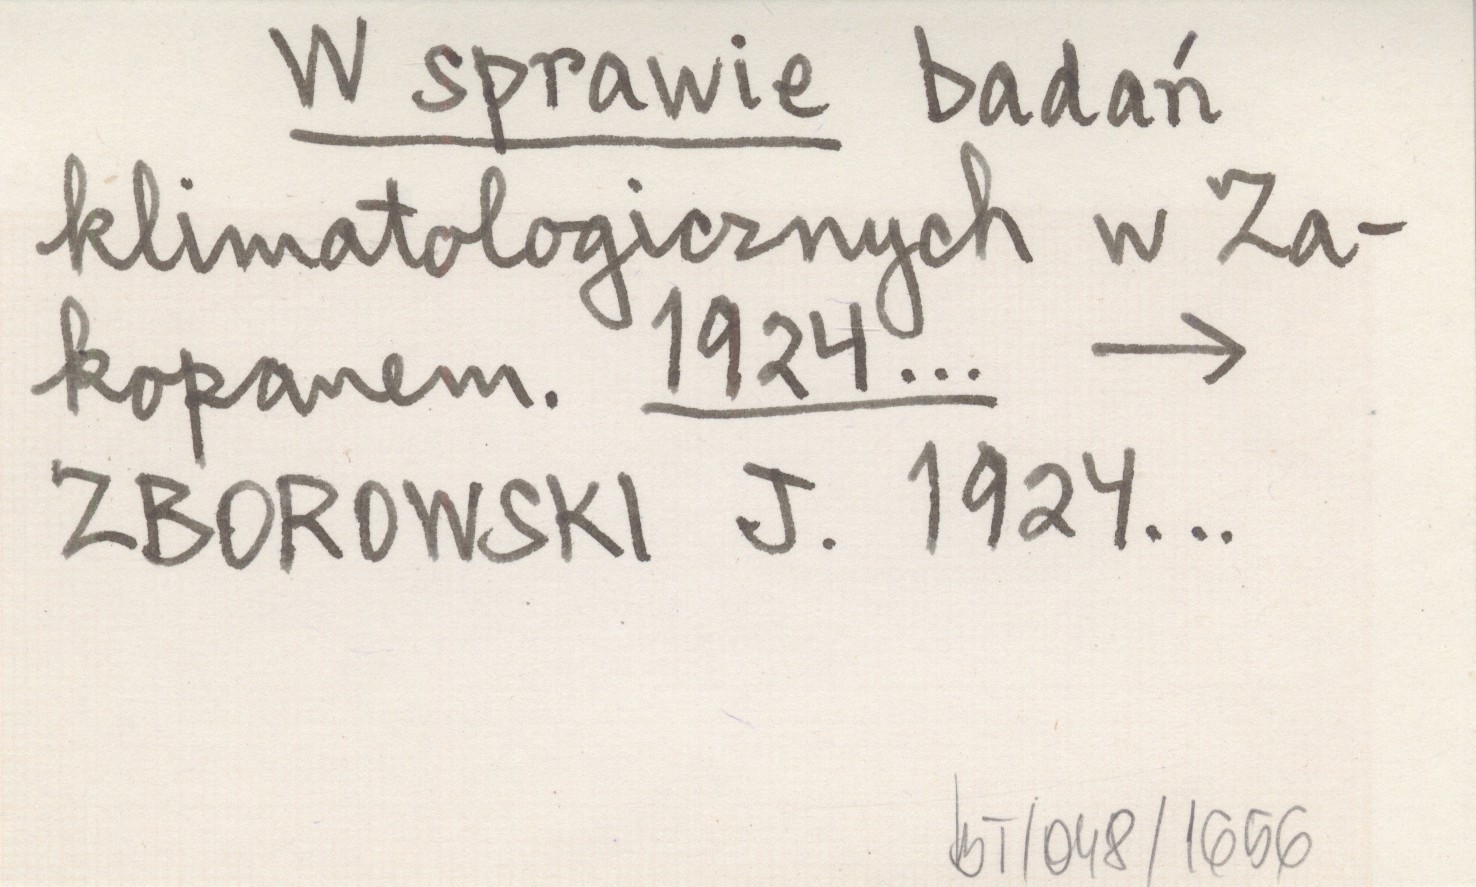 W sprawie badań
klimatologicznych w Za-
kopanem. 1924... →
ZBOROWSKI J. 1924...
/048/1656